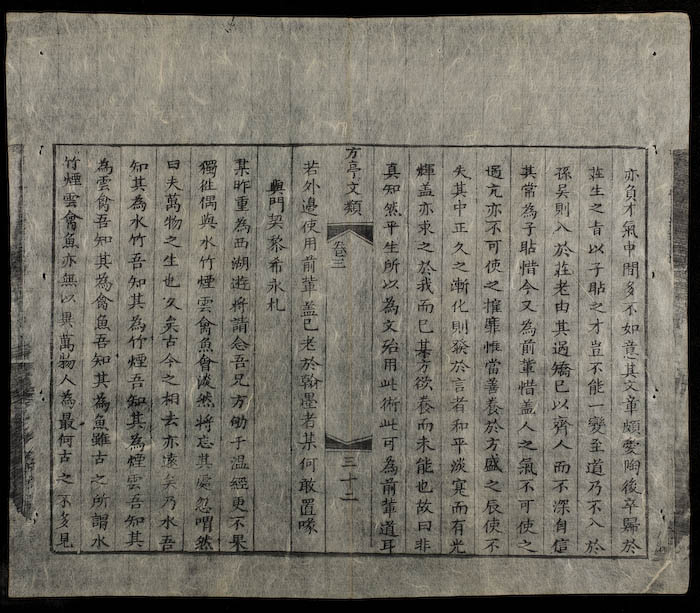 亦負才氣中間多不如意其文章頗愛陶後卒歸於
莊生之旨以子瞻之才豈不能一變至道乃不入於
孫吳則入於莊老由其過矯已以齊人而不深自信
其常為子瞻惜今又為前輩惜盖人之氣不可使之
過亢亦不可使之摧靡惟當善養於方盛之辰使不
失其中正久之漸化則發於言者和平淡寔而有光
輝盖亦求之於我而已某方欲養而未能也故曰非
真知然平生所以為文殆用此術此可為前輩道耳
方亭文類
卷三
三十二
若外邊使用前輩盖已老於翰墨者某何敢置喙
與門契黎希永札
某昨重為西湖遊將請仝吾兄方劬于温經更不果
獨徃偶與水竹煙雲禽魚會淡然將忘其處忽喟然
曰夫萬物之生也久矣古今之相去亦遠矣乃水吾
知其為水竹吾知其為竹煙吾知其為煙雲吾知其
為雲禽吾知其為禽魚吾知其為魚雖古之所謂水
竹煙雲禽魚亦無以異萬物人為最何古之不多見